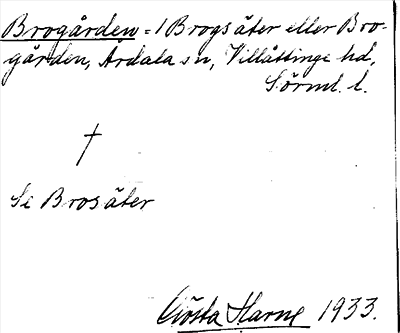 Brogården = 1 Brogsäter eller Bro-
gården, Årdala sn, Villåttinge hd,
Sörml. l.
†
Se Brosäter
Gösta Harne 1933.